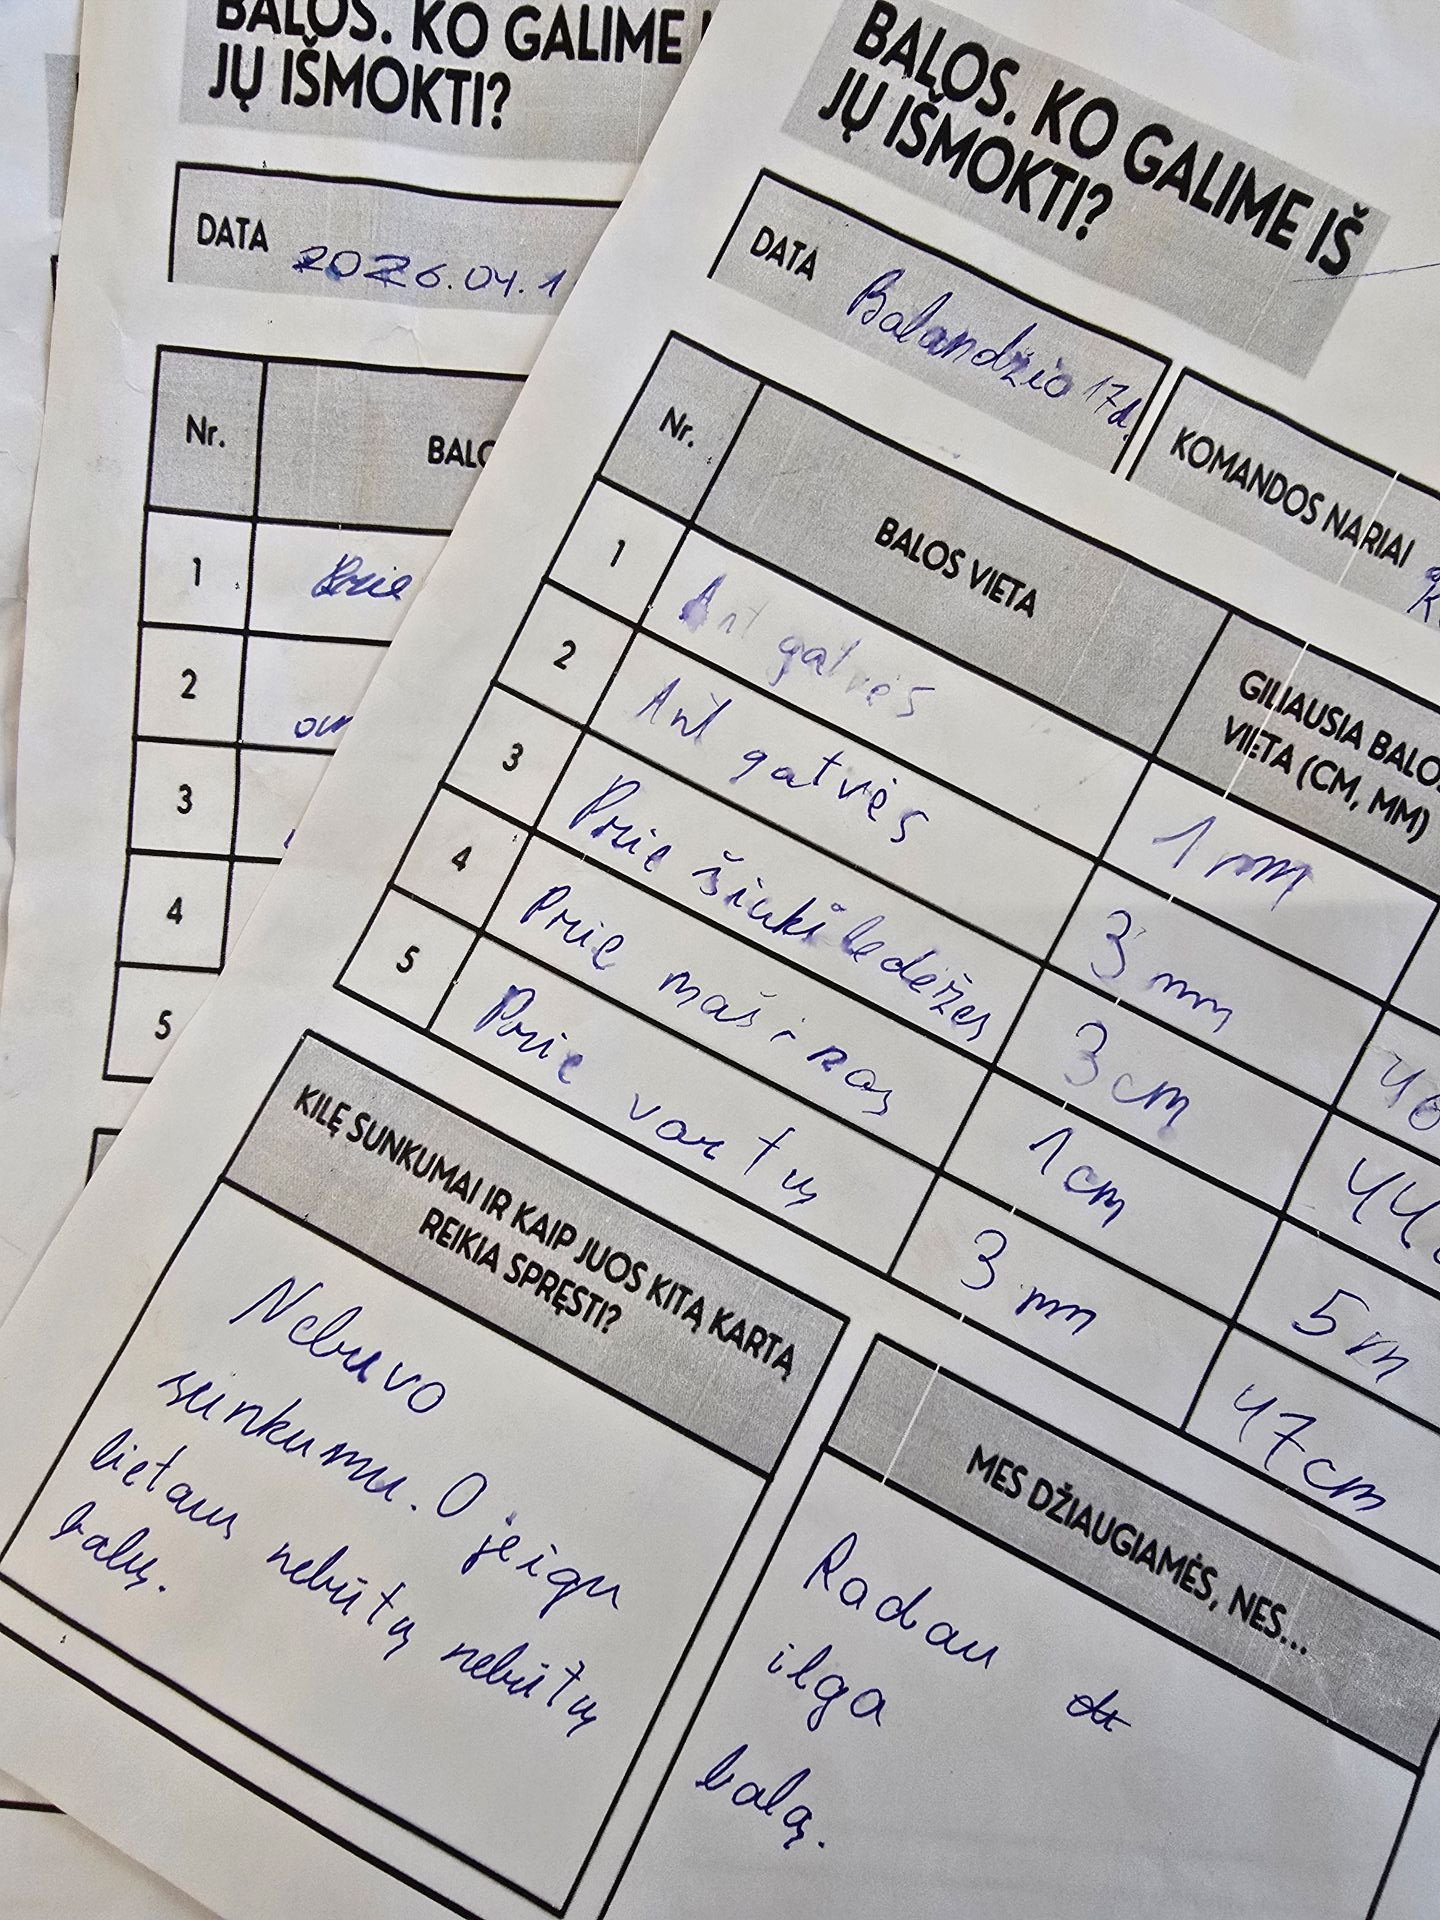 BALOS. KO GALIME
JŲ IŠMOKTI?
DATA 2026.04.1
Nr.
BALO
1 Prie
2
3
4
5
BALOS. KO GALIME IŠ
JŲ IŠMOKTI?
DATA Balandžio 17d.
KOMANDOS NARIAI
Nr. BALOS VIETA
GILIAUSIA BALOS
VIETA (CM, MM)
1 Ant gatvės 1 mm
2 Ant gatvės 3 mm
3 Prie šiukšledėžes 3 cm
4 Prie mašinos 1 cm 5 m
5 Prie vartų 3 mm 47 cm
KILĘ SUNKUMAI IR KAIP JUOS KITĄ KARTĄ
REIKIA SPRĘSTI?
Nebuvo
sunkumu. O jeigu
lietaus nebūtų nebūtų
balų.
MES DŽIAUGIAMĖS, NES...
Radau
ilga
balą.